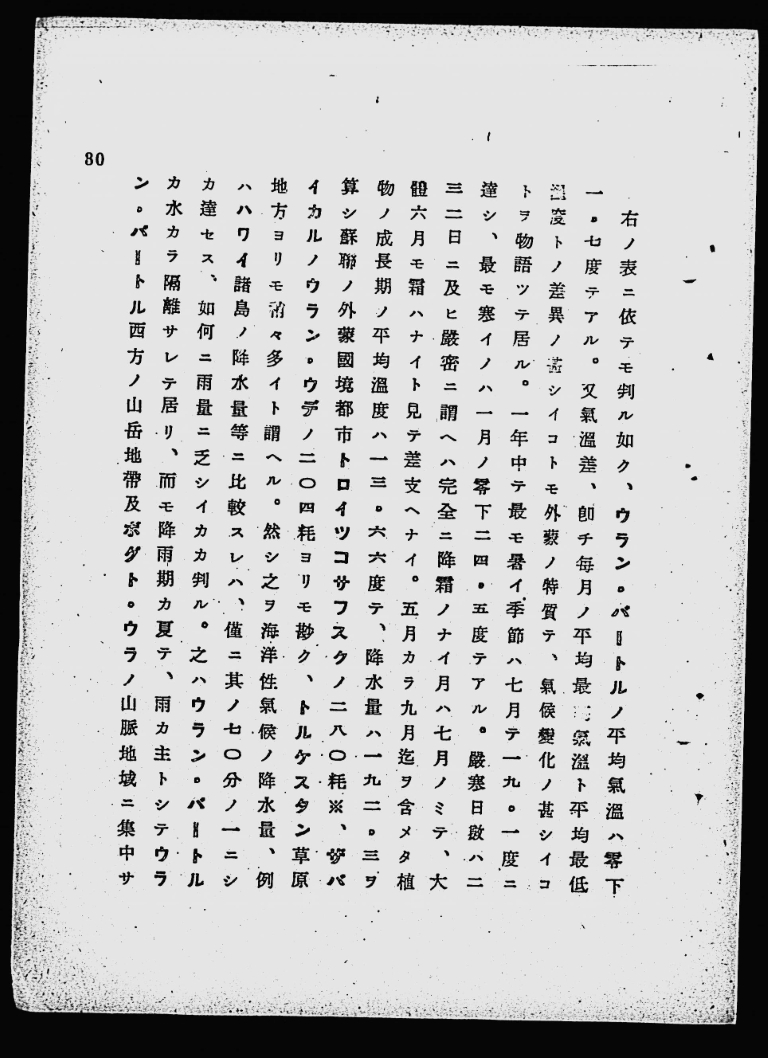 80
右ノ表ニ依テモ判ル如ク、ウラン。バートルノ平均氣溫ハ零下
一。七度テアル。又氣溫差、卽チ每月ノ平均最 氣溫ト平均最低
溫度トノ差異ノ甚シイコトモ外蒙ノ特質テ、氣候變化ノ甚シイコ
トヲ物語ツテ居ル。一年中テ最モ暑イ季節ハ七月テ一九。一度ニ
達シ、最モ寒イノハ一月ノ零下二四。五度テアル。嚴寒日數ハ二
三二日ニ及ヒ嚴密ニ謂ヘハ完全ニ降霜ノナイ月ハ七月ノミテ、大
體六月モ霜ハナイト見テ差支ヘナイ。五月カラ九月迄ヲ含メタ植
物ノ成長期ノ平均溫度ハ一三。六六度テ、降水量ハ一九二。三ヲ
算シ蘇聯ノ外蒙國境都市トロイツコサフスクノ二八〇粍※、ザバ
イカルノウラン。ウデノ二〇四粍ヨリモ尠ク、トルケスタン草原
地方ヨリモ稍々多イト謂ヘル。然シ之ヲ海洋性氣候ノ降水量、例
ハハワイ諸島ノ降水量等ニ比較スレハ、僅ニ其ノ七〇分ノ一ニシ
カ達セス、如何ニ雨量ニ乏シイカカ判ル。之ハウラン。バートル
カ水カラ隔離サレテ居リ、而モ降雨期カ夏テ、雨カ主トシテウラ
ン。バートル西方ノ山岳地帶及ボグト。ウラノ山脈地域ニ集中サ